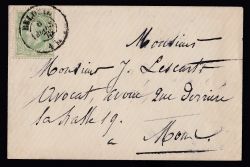 Monsieur
Monsieur J. Lescarts
Avocat, avoué Rue Derrière
la halle 19.
à Mons